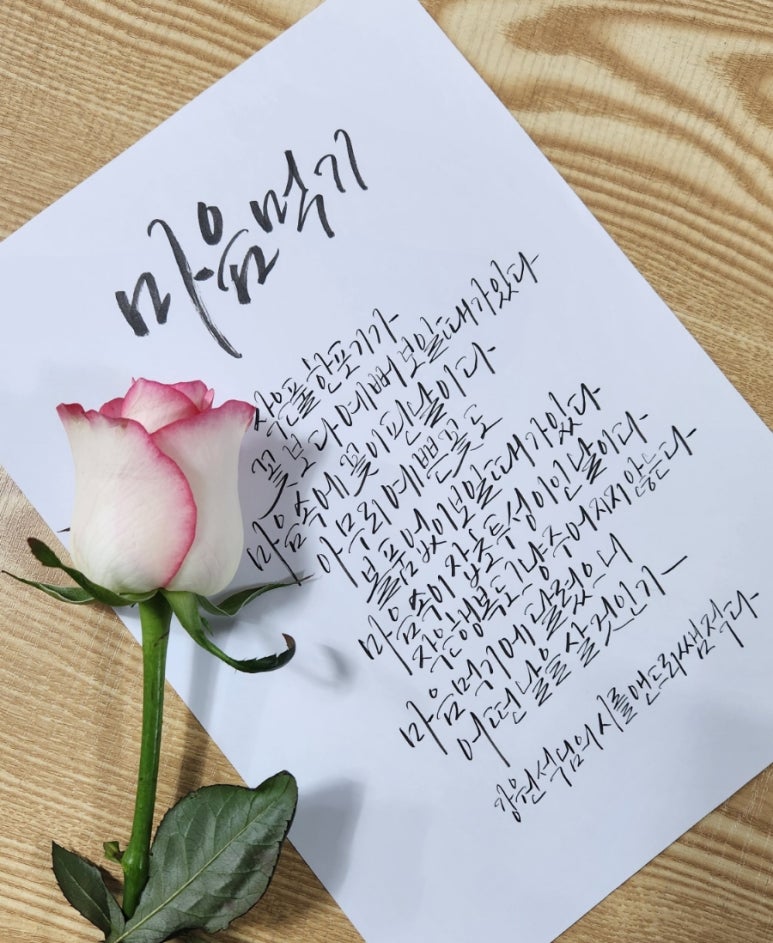 마음먹기
작은 풀 한 포기가
꽃보다 예뻐 보일 때가 있다
마음속에 꽃이 핀 날이다
아무리 예쁜 꽃도
볼품없이 보일 때가 있다
마음속이 잡초투성이인 날이다
작은 행복도 그냥 주어지지 않는다
마음먹기에 달렸으니
어떤 날을 살 것인가
강원석님의 시를 앤드리쌤 적다